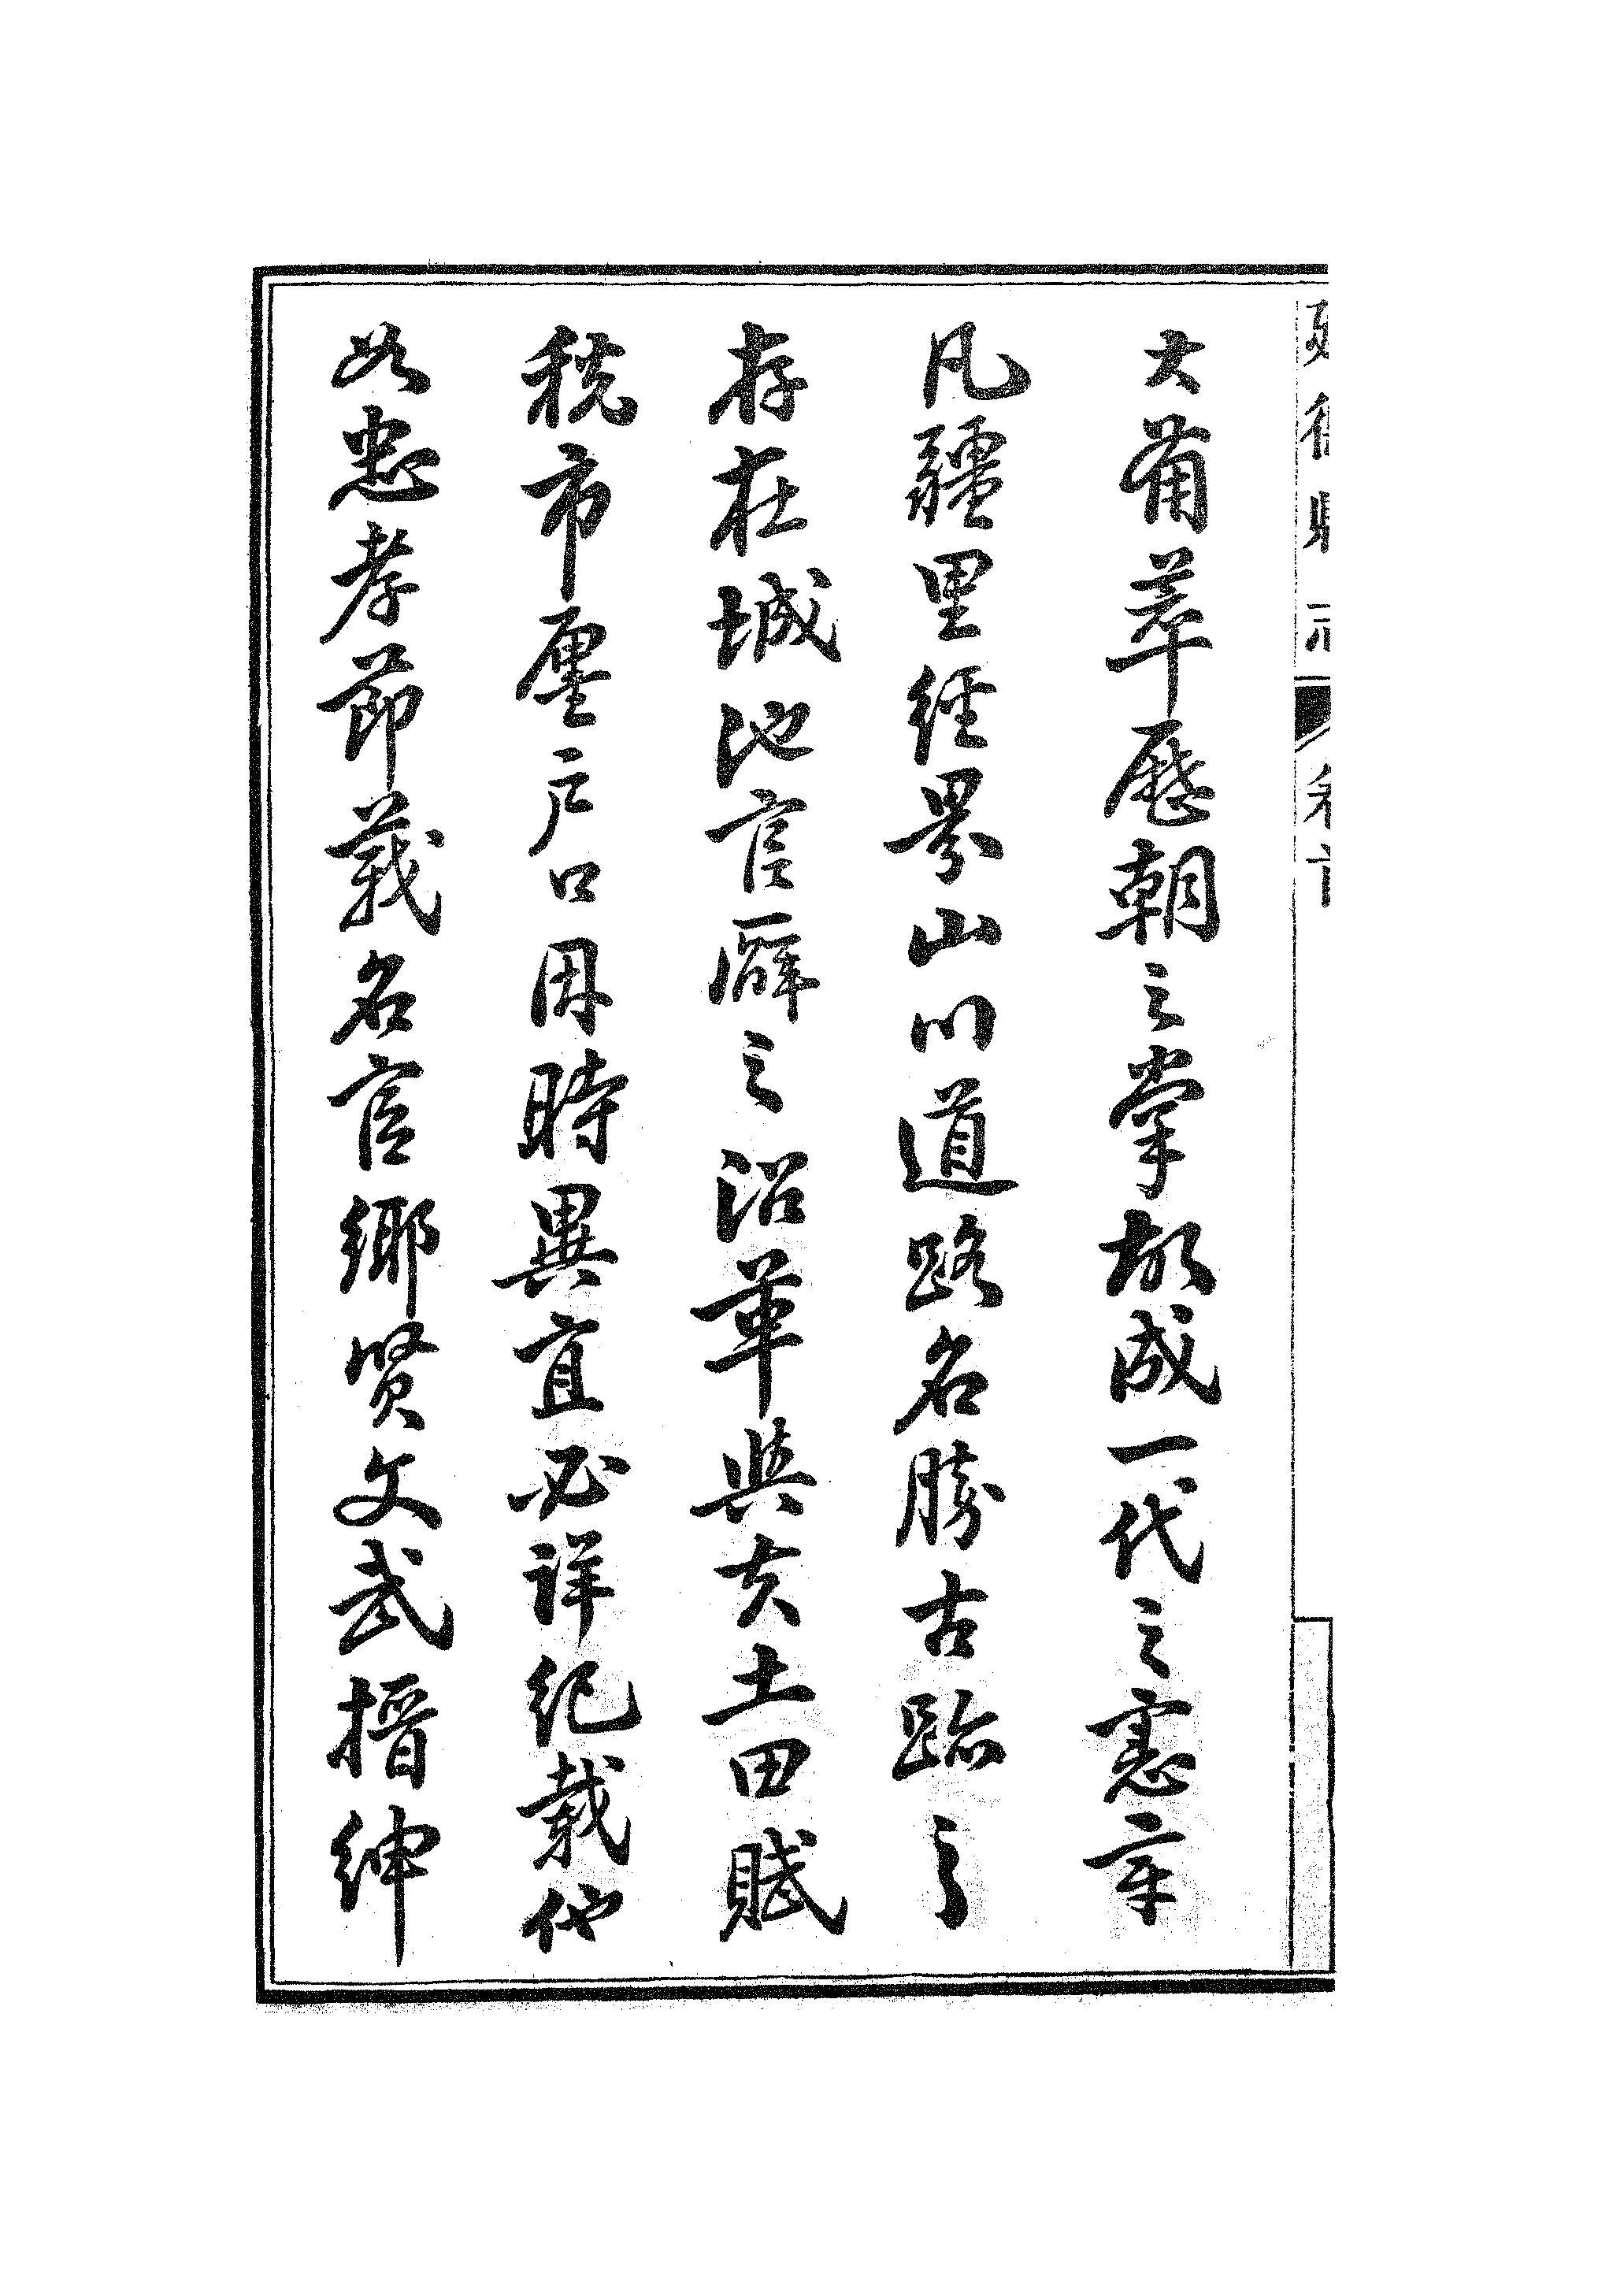 大備萃歷朝之掌故成一代之憲章
凡疆里經界山川道路名勝古蹟之
存在城池官廨之沿革與夫土田賦
稅市廛戶口因時異宜必詳紀載他
如忠孝節義名官鄉賢文武搢紳